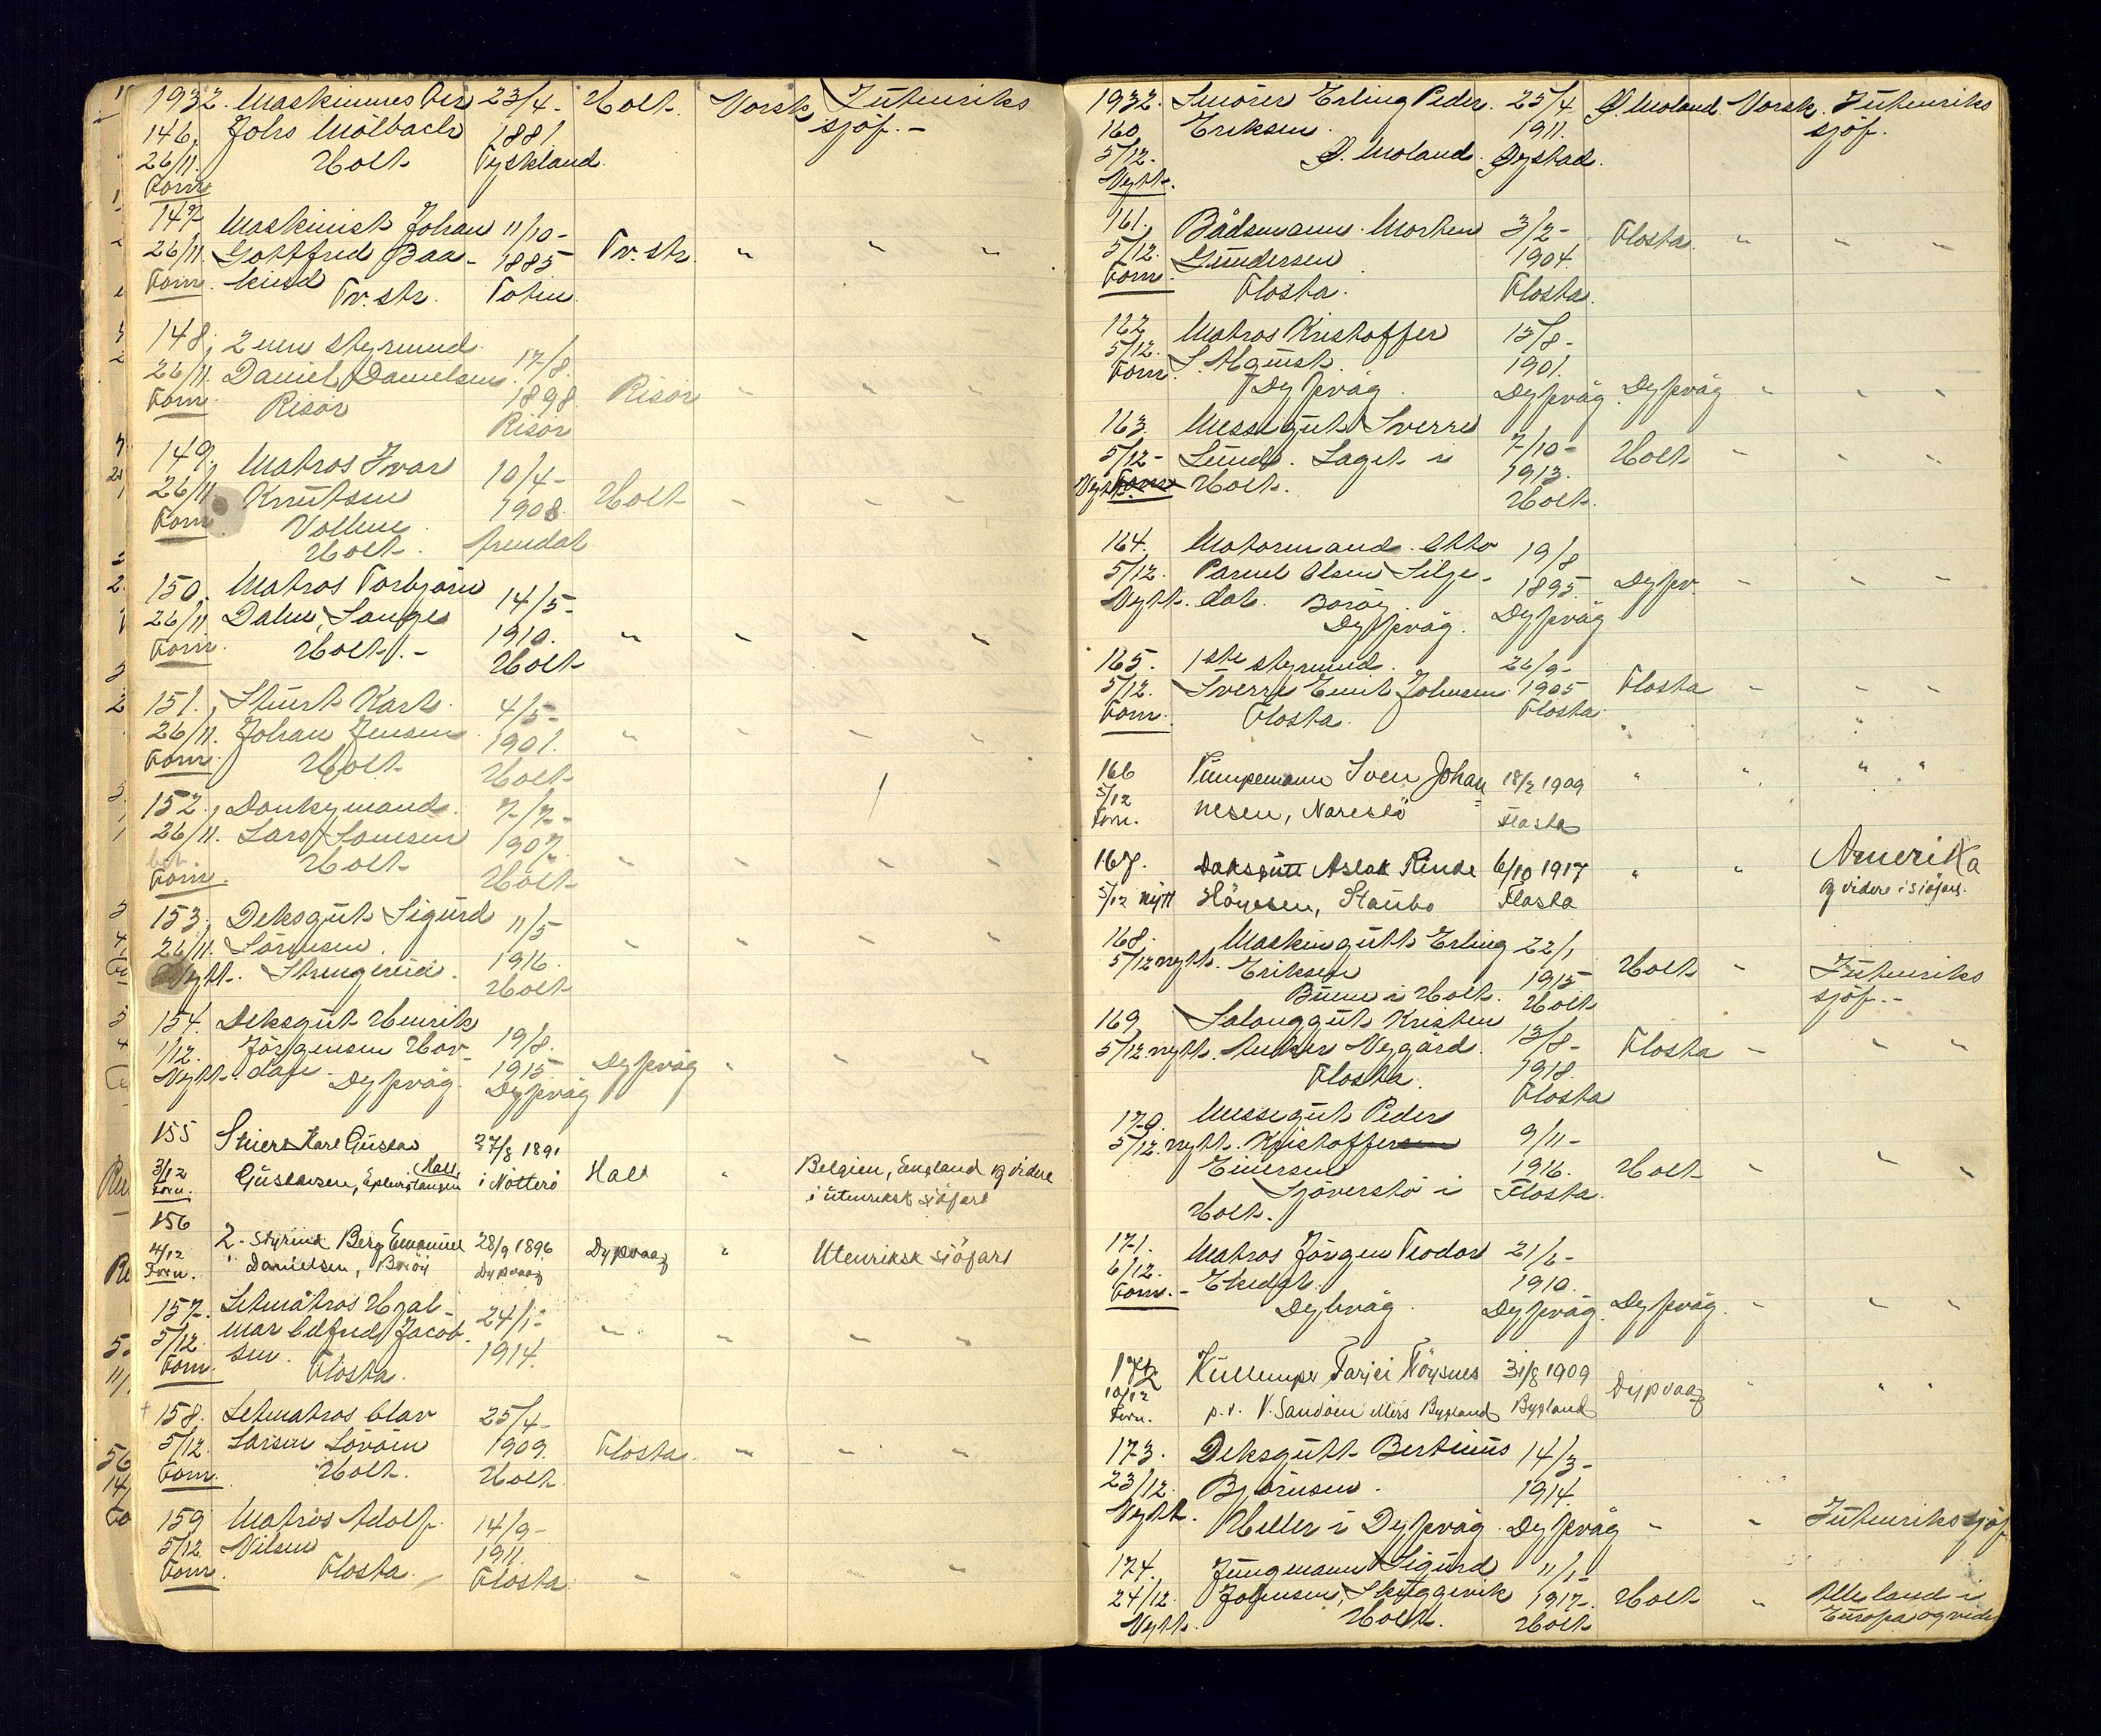 1932. Maskinmester 23/4- Holt. Norsk I utenriks
146, Johs Mölbach 1881 sjöf.-
26/11. Holt Tyskland.
Forn.
147 Maskinist Johan 11/10-
26/11. Gottfred Baa- 1885 Tv.str. " " "
Forn. kind Tv.str. Toten.
148, 2nen styrmd. 17/8.
26/11. Daniel Danielsen 1898 Risör " " "
Forn. Risör Risör
149. Matros Ivar 10/4-
26/11 Knutsen 1908. Holt " " "
Forn. Vollene
Holt. Arendal
150, Matros Torbjörn 14/5-
26/11 Dalen, Songe 1910. " " " "
Forn. Holt.- Holt
151. Stuert Karl 4/5-
26/11. Johan Jensen 1901. " " " "
Forn. Holt Holt
152., Donkeymand 7/7-
26/11. Lars Lonesen 1907. " " " "
Forn. Holt Holt
153, Deksgut Sigurd 11/5
26/11. Sörensen. 1916. " " " "
Nytt. Strengereid. Holt
154. Deksgut Henrik 19/8.
1/12. Jörgensen Hov- 1915. Dypvåg " " "
Nytt. dan. Dypvåg. Dypvåg
155 Stuert Karl Gustav 27/8 1891
3/12 Gustavsen, Eplerstangen Holt i Nötterö Holt " Belgien, England og videre
Forn. i utenriksk sjöfart
156 2. styrmd Berg Emanuel 28/9 1896 Dypvaag " Utenriksk sjöfart
4/12 Danielsen, Boröy Dypvaag
Forn.
157. Letmatros Hjal- 24/1-
5/12 mar Odfred Jacob- 1914. " " " "
Forn. sen. Flosta.
158. Letmatros Olav 25/4-
5/12 Larsen Lövdin 1909. Flosta " " "
Forn. Holt. Holt
159 Matros Adolf 14/9-
5/12 Nilsen 1911. " " " "
Forn. Flosta. Flosta
1932. Smörer Erling Peder 25/4. Ö. Moland. Norsk. I utenriks
160 Eriksen. 1911. sjöf.
5/12. Ö. Moland. Öystad.
Nytt.
161. Bådsmann Morten 3/2- Flosta " " "
5/12. Gundersen 1904.
Forn. Flosta. Flosta.
162 Matros Kristoffer 15/8-
5/12. S. Almquist. 1901.
Forn. Dypvåg. Dypvåg. Dypvåg " " "
163. Messegut Sverre 7/10- Holt " " "
5/12- Lunde. Laget i 1913.
Nytt. Holt. Holt.
164. Motormand Otto 19/8
5/12. Parnel Olsen Lilje- 1895. Dypv. " " "
Nytt. dal. Boröy Dypvåg. Dypvåg
165. 1ste styrmd. 26/9-
5/12. Sverre Emil Johnsen 1905 Flosta " " "
Forn. Flosta. Flosta
166 Pumpemann Sven Johan- 18/2 1909 " " " "
5/12 nesen, Narestö Flosta
Forn.
167. Daksgutt Aslak Rinde 6/10 1917 " " Amerika
5/12 nytt Höyesen, Staubo Flosta og videre i sjöfart.
168. Maskingutt Erling 22/1
5/12 nytt. Eriksen 1915 Holt " I utenriks
Buene i Holt. Holt sjöf.-
169, Salonggut Kristen 13/8- Flosta " " "
5/12 nytt. Anker Nygård. 1918.
Flosta. Flosta
170. Messegut Peder 9/11-
5/12. nytt. Kristoffersen
Einersen 1916. Holt " " "
Sjöverstö i Flosta.
Holt.
171. Matros Jörgen Teodor 21/6-
6/12. Ekedal. 1910.
Forn.- Dypvåg. Dypvåg. Dypvåg. " " "
172 Kullemper Tarjei Röysnes 31/8 1909 Dypvaag " " "
10/12 p.t. N. Sandöen ellers Bygland Bygland
Forn.
173. Deksgutt Bertinius 14/3-
23/12. Björnsen. 1914.
Nytt. Heller i Dypvåg. Dypvåg " " I utenriks sjöf
174. Jungmann Sigurd 11/1-
24/12 Johnsen, Skuggevik 1917. Holt " Alle land i
Nytt. Holt. Holt Europa og videre